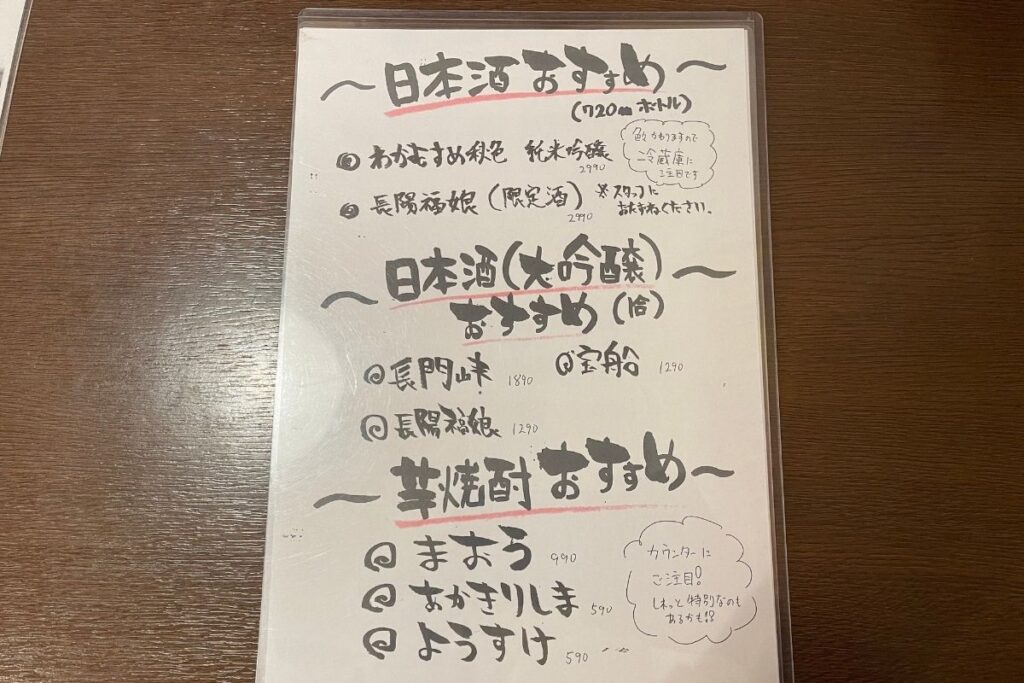 ～日本酒 おすすめ～
(720mℓ ボトル)
わかむすめ秋色 純米吟醸
2990
色々かわりますので
冷蔵庫に
注目です
長陽福娘 (限定酒)
2990
※スタッフに
おたずねください。
～日本酒(大吟醸)～
おすすめ (1合)
長門峡 1890
宝船 1290
長陽福娘 1290
～芋焼酎 おすすめ～
まおう 990
あかきりしま 590
ようすけ 590
カウンターに
ご注目!
しれっと特別なのも
あるかも!?